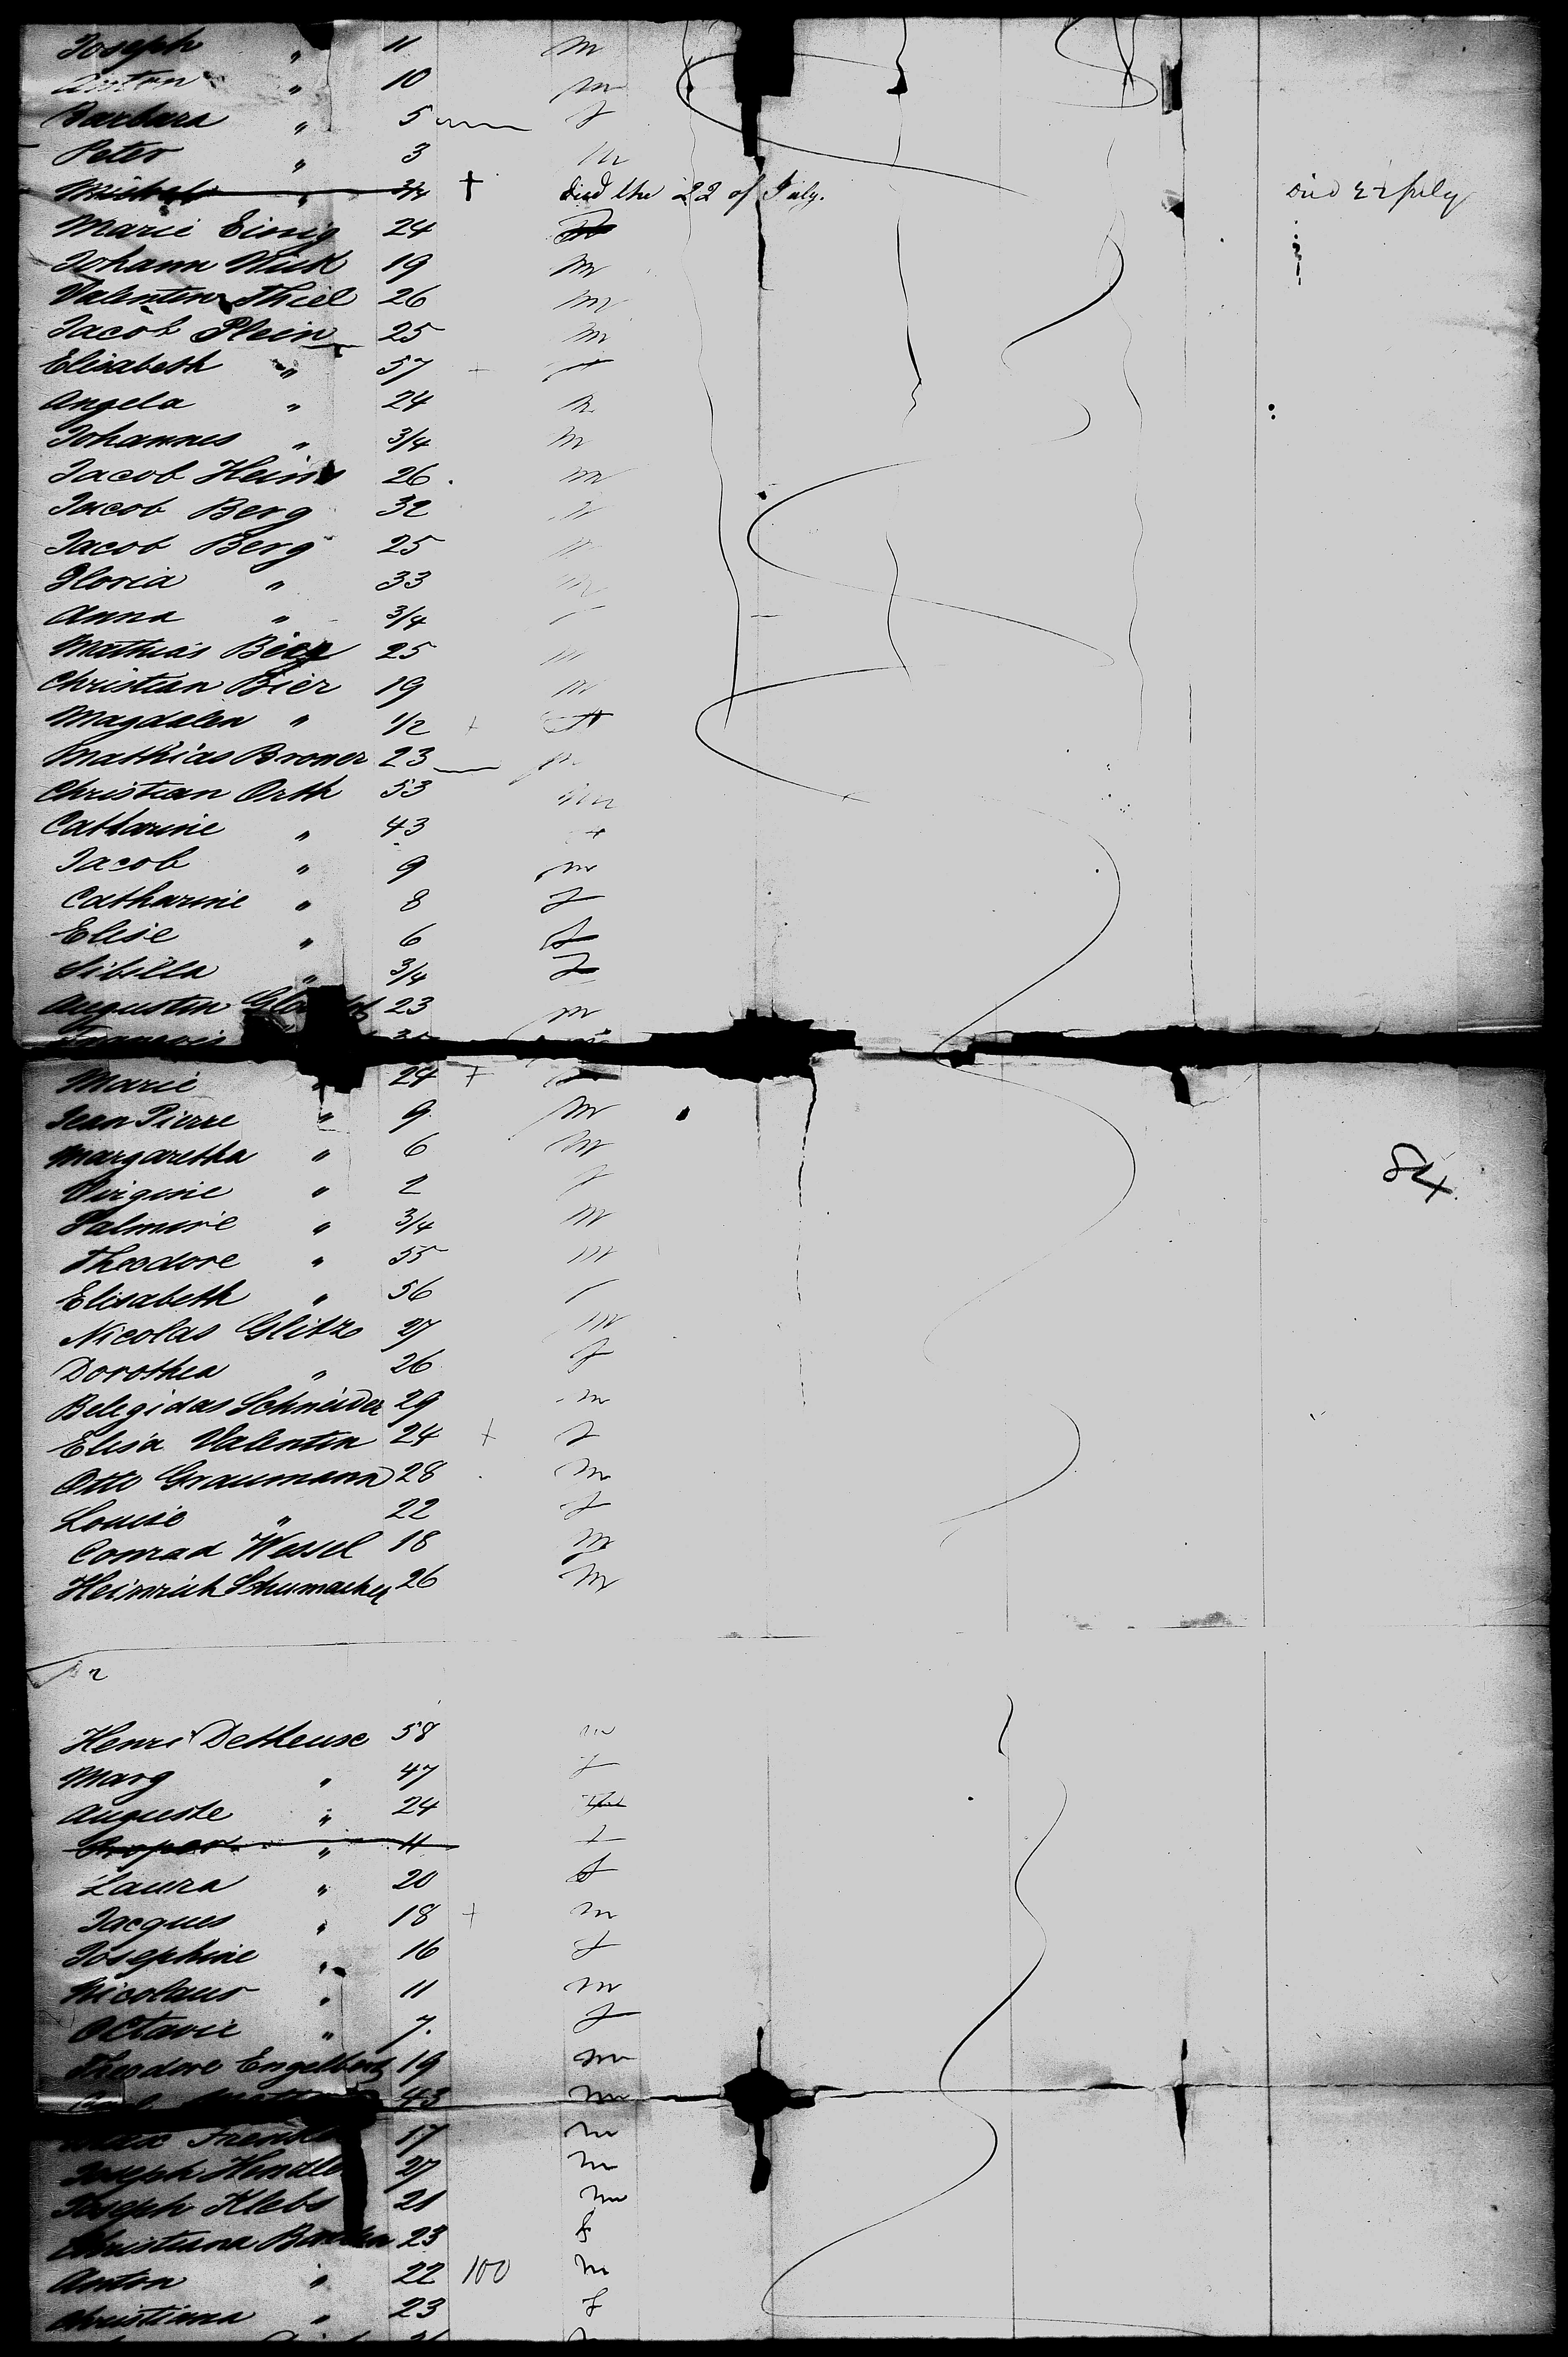 Joseph " 11 m
Anton " 10 m
Barbara " 5 f
Peter " 3 m
Michel " 3/4 † died the 22 of July. Died 22 July
Marie Einig 24
Johann Wick 19 m
Valentin Thiel 26 m
Jacob Plein 25 m
Elisabeth " 57 + f
Angela " 24
Johannes " 3/4 m
Jacob Heins 26. m
Jacob Berg 32 m
Jacob Berg 25 m
Gloria " 33 m
Anna " 3/4 f
Mathias 25 m
Christian Bier 19 m
Magdalen " 1/2 +
Mathias Broner 23 m
Christian Orth 53 m
Catharine " 43 f
Jacob " 9 m
Catharine " 8 f
Elise " 6 f
Sibilla " 3/4 f
Augustin 23 m
Marie " 24 + f
Jean Pierre " 9 m
Margaretha " 6 m
Virginie " 2 f
Palmire " 3/4 m
84
Theodore " 55 m
Elisabeth " 56 f
Nicolas Glitz 27 m
Dorothea " 26 f
Belegidas Schneider 29 m
Elisa Valentin 24 + f
Otto Graumann 28 m
Louise " 22 f
Conrad Wessel 18 m
Heinrich Schumacher 26 m
Henri Detheuse 58 m
Marg " 47 f
Auguste " 24
" 11 f
Laura " 20 f
Jacques " 18 + m
Josephine " 16 f
Nicolaus " 11 m
Octavie " 7. f
Theodore Engelbert 19 m
43 m
17 m
Joseph 27 m
Joseph Klebs 21 m
Christiana 23 f
Anton " 22 100 m
Christiana " 23 f